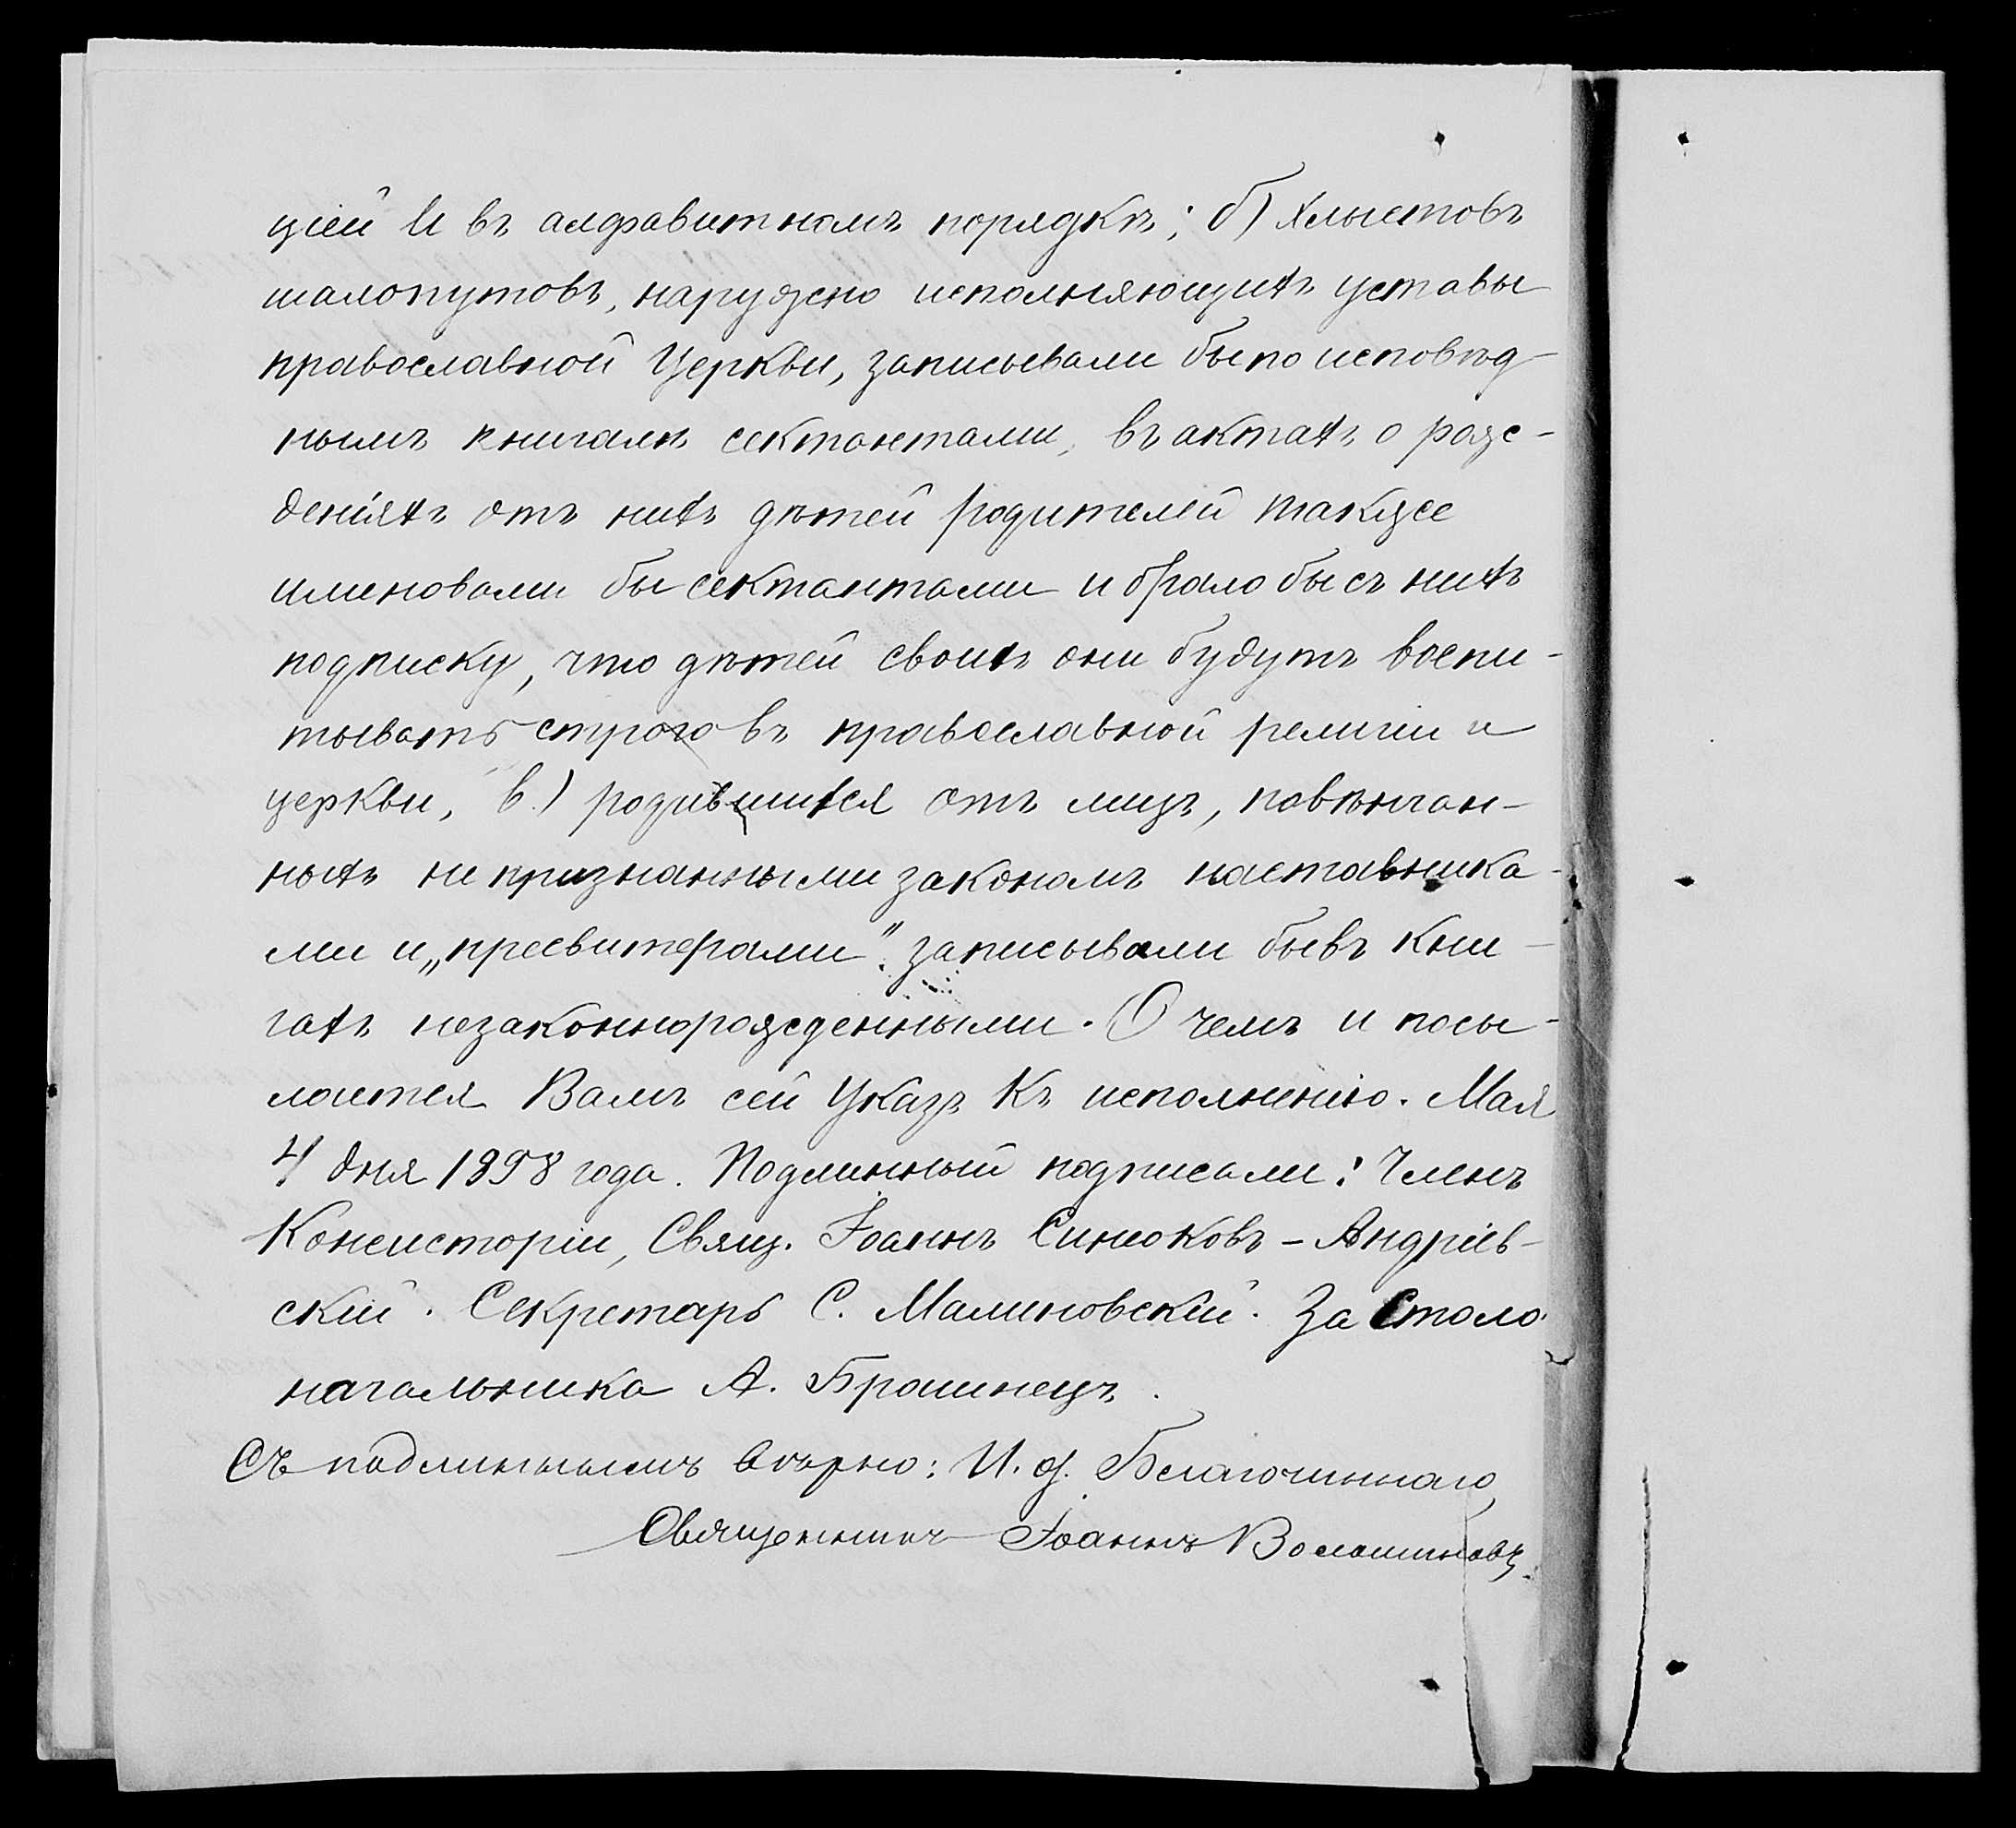 ціей И въ алфавитномъ порядкѣ; б) Хлыстовъ
шалопутовъ, наружно исполняющихъ уставы
православной Церкви, записывали бы по исповѣд-
нымъ книгамъ сектантами, въ актахъ о рож-
деніяхъ отъ нихъ дѣтей родителей также
именовали бы сектантами и брало бы съ нихъ
подписку, что дѣтей своихъ они будутъ воспи-
тывать строго въ православной религіи и
церкви, в.) родившихся отъ лицъ, повѣнчан-
ныхъ не признанными закономъ наставника-
ми и „пресвитерами“. записывали бы въ кни-
гахъ незаконнорожденными. О чемъ и посы-
лается Вамъ сей Указъ Къ исполненію. Мая
4 дня 1898 года. Подлинный подписали: Членъ
Консисторіи, Свящ. Іоаннъ Синюковъ-Андріев-
скій. Секретарь С. Малиновскій. За Столо-
начальника А. Брашнецъ.
Съ подлиннымъ вѣрно: И. д. Благочиннаго,
Священникъ Іоаннъ Волошиновъ.